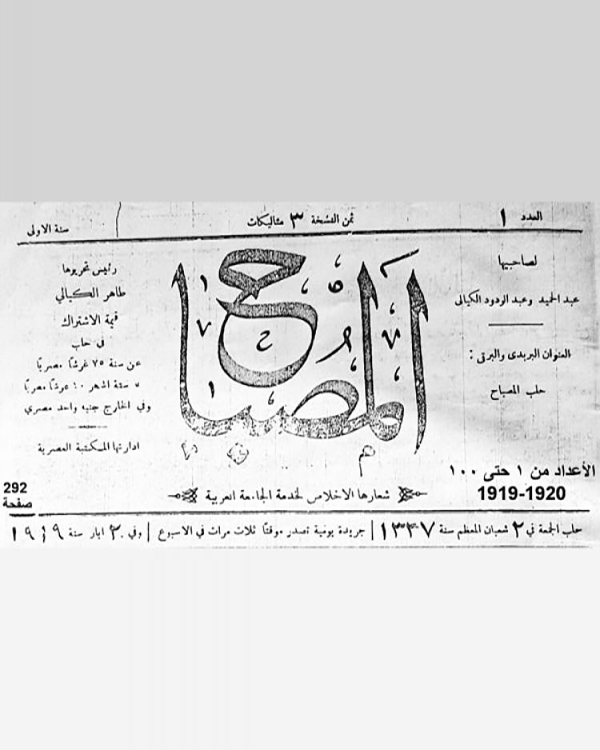 العدد ١
ثمن النسخة ٣ متاليكات
سنة الاولى
لصاحبيها
عبد الحميد وعبد الودود الكيالى
العنوان البريدى والبرقى :
حلب المصباح
المصباح
رئيس تحريرها
طاهر الكيالي
قيمة الاشتراك
فى حلب
عن سنة ٧٥ غرشا مصريا
ستة اشهر ٤٠ غرشا مصريا
وفي الخارج جنيه واحد مصري
ادارتها المكتبة العصرية
الأعداد من ١ حتى ١٠٠
1919-1920
292
صفحة
شعارها الاخلاص لخدمة الجامعة العربية
حلب الجمعة في ٢ شعبان المعظم سنة ١٣٣٧ | جريدة يومية تصدر موقتا ثلاث مرات في الاسبوع | وفي ٢ ايار سنة ١٩١٩